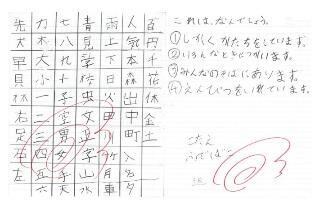 先 力 七 青 雨 人 百
木 八 見 上 気 円
早 大 九 草 下 本 千
貝 小 十 村 日 森 花
林 一 子 虫 火 出 休
右 二 字 文 田 中 金
三 男 正 川 町 土
四 女 字 竹 入
左 五 手 山 月 名
六 天 水 車 夕
これは、なんでしょう。
①しかくい かたちをしています。
②いろんなときにつかいます。
③みんなのそばにあります。
④えんぴつをいれています。
こたえ
ふでばこ